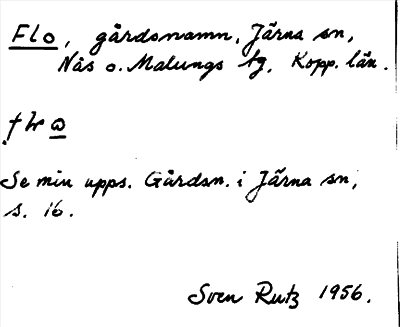 Flo, gårdsnamn, Järna sn,
Nås o. Malungs tg, Kopp. län.
Se min upps. Gårdsn. i Järna sn,
s. 16.
Sven Rutz 1956.